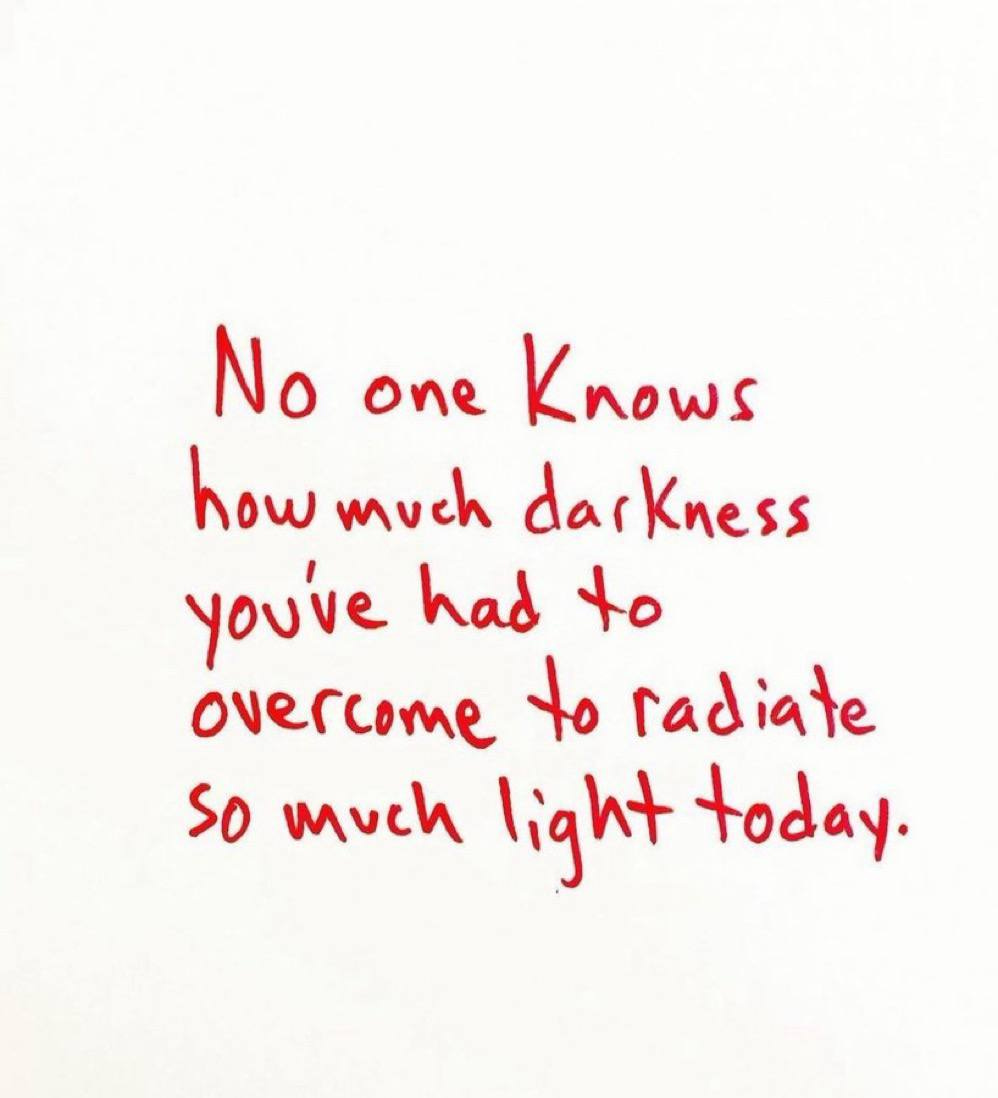 No one Knows
how much darkness
you've had to
overcome to radiate
so much light today.